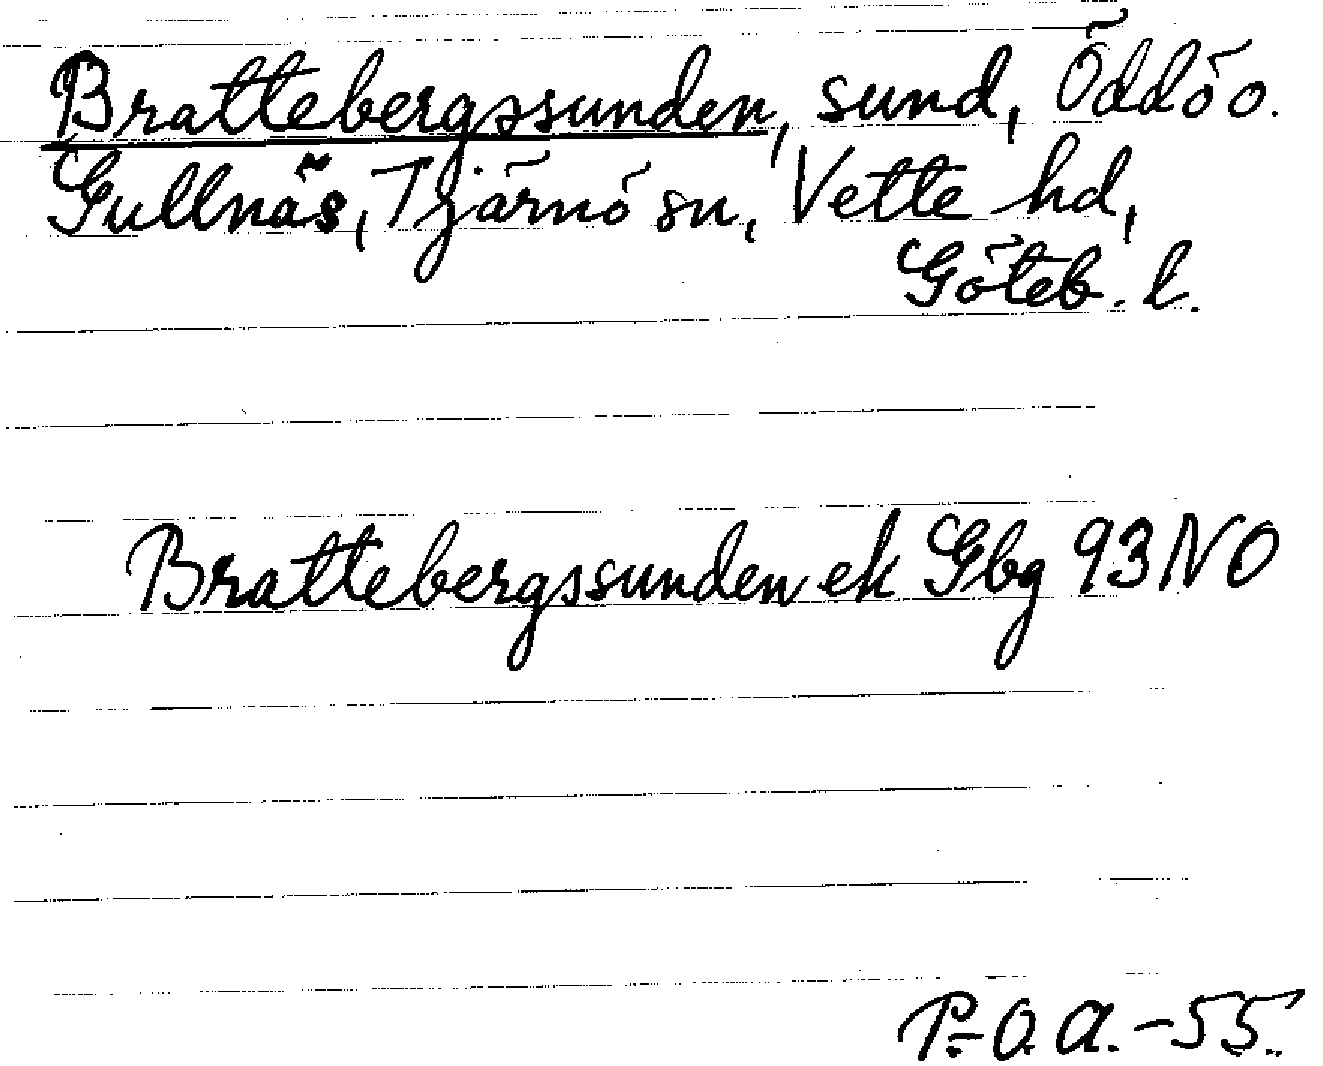 Brattebergssunden, sund, Öddö o.
Gullnäs, Tjärnö sn, Vette hd,
Göteb. l.
Brattebergssunden ek Gbg 93 NO
P.-O. A. -55.